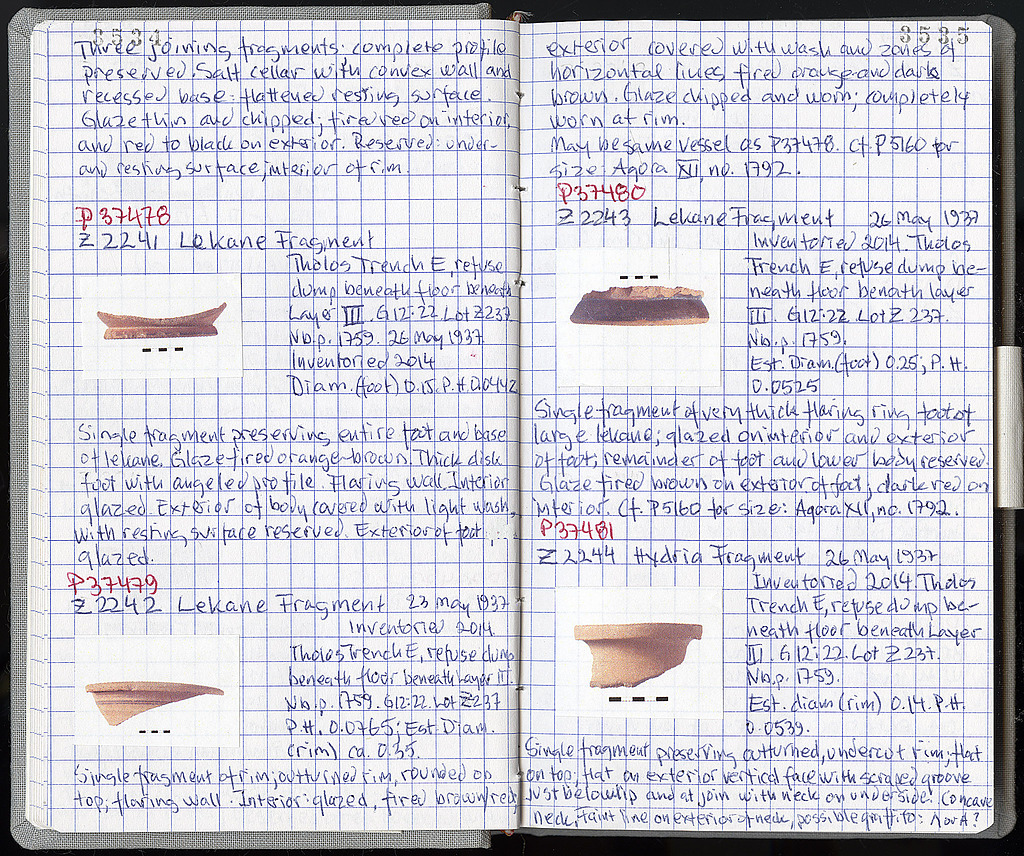 3534
Three joining fragments: complete profile
preserved. Salt cellar with convex wall and
recessed base: flattened resting surface.
Glaze thin and chipped; fired red on interior,
and red to black on exterior. Reserved: under-
and resting surface, interior of rim.
P37478
Z 2241 Lekane Fragment
Tholos Trench E, refuse
dump beneath floor beneath
Layer III. G12:22. Lot Z 237
Nb.p. 1759. 26 May 1937
Inventoried 2014
Diam. (foot) 0.15. P.H. 0.0442
Single fragment preserving entire foot and base
of lekane. Glaze fired orange-brown. Thick disk
foot with angeled profile. Flaring wall. Interior
glazed. Exterior of body covered with light wash,
with resting surface reserved. Exterior of foot
glazed.
P37479
Z 2242 Lekane Fragment 23 May 1937
Inventoried 2014.
Tholos Trench E, refuse dump
beneath floor beneath Layer III.
Nb.p. 1759. G12:22. Lot Z 237
P.H. 0.0765; Est. Diam.
(rim) ca. 0.35.
Single fragment of rim; outturned rim, rounded on
top; flaring wall. Interior: glazed, fired brown/red;
3535
exterior covered with wash and zones of
horizontal lines fired orange and dark
brown. Glaze chipped and worn; completely
worn at rim.
May be same vessel as P37478. Cf. P5160 for
size: Agora XII, no. 1792.
P37480
Z 2243 Lekane Fragment 26 May 1937
Inventoried 2014. Tholos
Trench E, refuse dump be-
neath floor benath layer
III. G12:22. Lot Z 237.
Nb.p. 1759.
Est. Diam. (foot) 0.25; P.H.
0.0525
Single fragment of very thick flaring ring foot of
large lekane; glazed on interior and exterior
of foot; remainder of foot and lower body reserved.
Glaze fired brown on exterior of foot, dark red on
interior. Cf. P5160 for size: Agora XII, no. 1792.
P37481
Z 2244 Hydria Fragment 26 May 1937
Inventoried 2014. Tholos
Trench E, refuse dump be-
neath floor beneath Layer
III. G12:22. Lot Z 237.
Nb.p. 1759.
Est. diam (rim) 0.14. P.H.
0.0539.
Single fragment preserving outturned, undercut rim; flat
on top; flat on exterior vertical face with scraped groove
just below lip and at join with neck on underside. Concave
neck, faint line on exterior of neck, possible graffito: Λ or A?